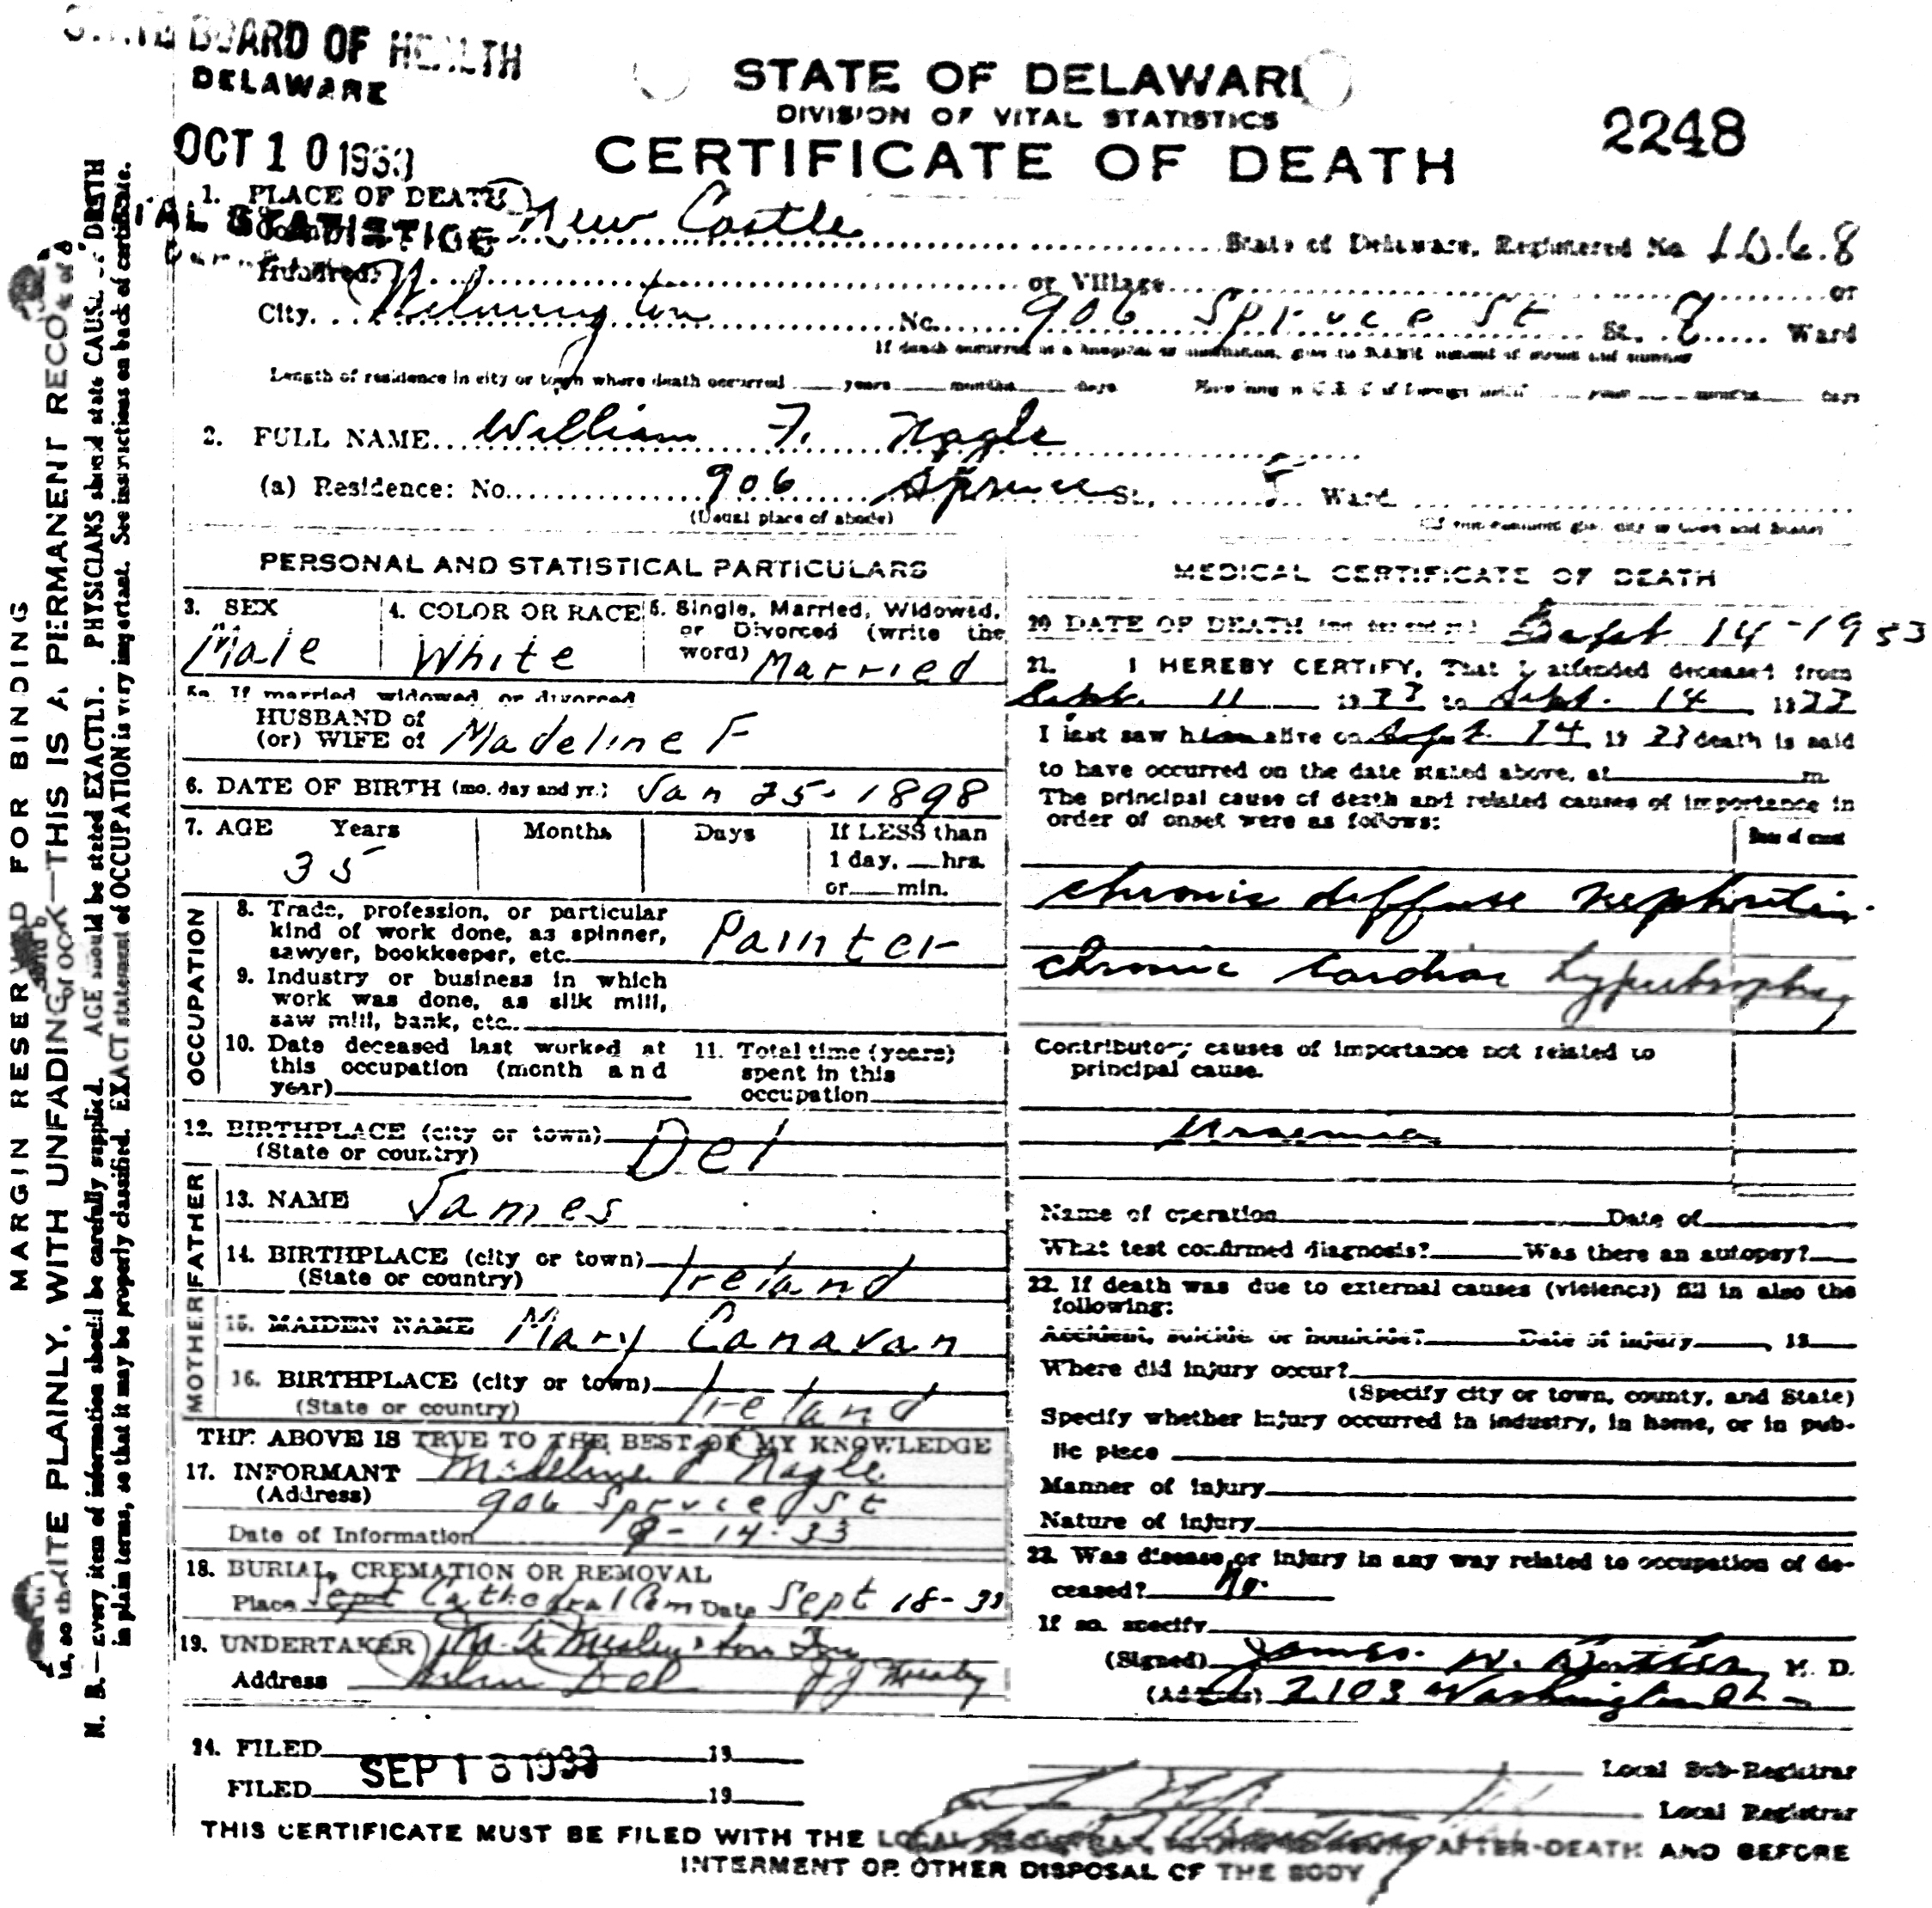 STATE BOARD OF HEALTH
DELAWARE
OCT 10 1933
STATE OF DELAWARE
DIVISION OF VITAL STATISTICS
CERTIFICATE OF DEATH
2248
1. PLACE OF DEATH
New Castle State of Delaware, Registered No 1068
Hundred or Village or
City Wilmington No. 906 Spruce St St. 8 Ward
If death occurred in a hospital or institution, give its NAME instead of street and number
Length of residence in city or town where death occurred years months days How long in U. S. if of foreign birth? years months days
2. FULL NAME William F. Nagle
(a) Residence: No. 906 Spruce St. Ward
(Usual place of abode) (If non-resident give city or town and State)
PERSONAL AND STATISTICAL PARTICULARS
3. SEX
Male
4. COLOR OR RACE
White
5. Single, Married, Widowed,
or Divorced (write the
word) Married
5a. If married, widowed, or divorced
HUSBAND of
(or) WIFE of Madeline F
6. DATE OF BIRTH (mo. day and yr.) Jan 25 - 1898
7. AGE Years Months Days If LESS than
35 1 day, hrs.
or min.
OCCUPATION
8. Trade, profession, or particular
kind of work done, as spinner,
sawyer, bookkeeper, etc. Painter
9. Industry or business in which
work was done, as silk mill,
saw mill, bank, etc.
10. Date deceased last worked at
this occupation (month and
year)
11. Total time (years)
spent in this
occupation
12. BIRTHPLACE (city or town)
(State or country) Del
FATHER
13. NAME James
14. BIRTHPLACE (city or town)
(State or country) Ireland
MOTHER
15. MAIDEN NAME Mary Canavan
16. BIRTHPLACE (city or town)
(State or country) Ireland
THE ABOVE IS TRUE TO THE BEST OF MY KNOWLEDGE
17. INFORMANT Madeline F Nagle
(Address) 906 Spruce St
Date of Information 9-14-33
18. BURIAL, CREMATION OR REMOVAL
Place Sept Cathedral Cem Date Sept 18-33
19. UNDERTAKER
Address Wilm Del
24. FILED 19
SEP 18 1933
FILED 19
MEDICAL CERTIFICATE OF DEATH
20 DATE OF DEATH (mo. day and yr.) Sept 14-1933
21. I HEREBY CERTIFY, That I attended deceased from
Sept. 11 1933 to Sept. 14 1933
I last saw him alive on Sept. 14, 1933 death is said
to have occurred on the date stated above, at m.
The principal cause of death and related causes of importance in
order of onset were as follows:
Date of onset
chronic diffuse nephritis
chronic cardiac hypertrophy
Contributory causes of importance not related to
principal cause.
Uraemia
Name of operation Date of
What test confirmed diagnosis? Was there an autopsy?
22. If death was due to external causes (violence) fill in also the
following:
Accident, suicide or homicide? Date of injury , 19
Where did injury occur?
(Specify city or town, county, and State)
Specify whether injury occurred in industry, in home, or in pub-
lic place
Manner of injury
Nature of injury
23. Was disease or injury in any way related to occupation of de-
ceased? No
If so, specify
(Signed) James W. M. D.
(Address) 2103 Washington St
Local Sub-Registrar
Local Registrar
THIS CERTIFICATE MUST BE FILED WITH THE LOCAL REGISTRAR AFTER DEATH AND BEFORE
INTERMENT OR OTHER DISPOSAL OF THE BODY
MARGIN RESERVED FOR BINDING
WRITE PLAINLY, WITH UNFADING INK—THIS IS A PERMANENT RECORD
N. B.—Every item of information should be carefully supplied. AGE should be stated EXACTLY. PHYSICIANS should state CAUSE OF DEATH
in plain terms, so that it may be properly classified. EXACT statement of OCCUPATION is very important. See instructions on back of certificate.